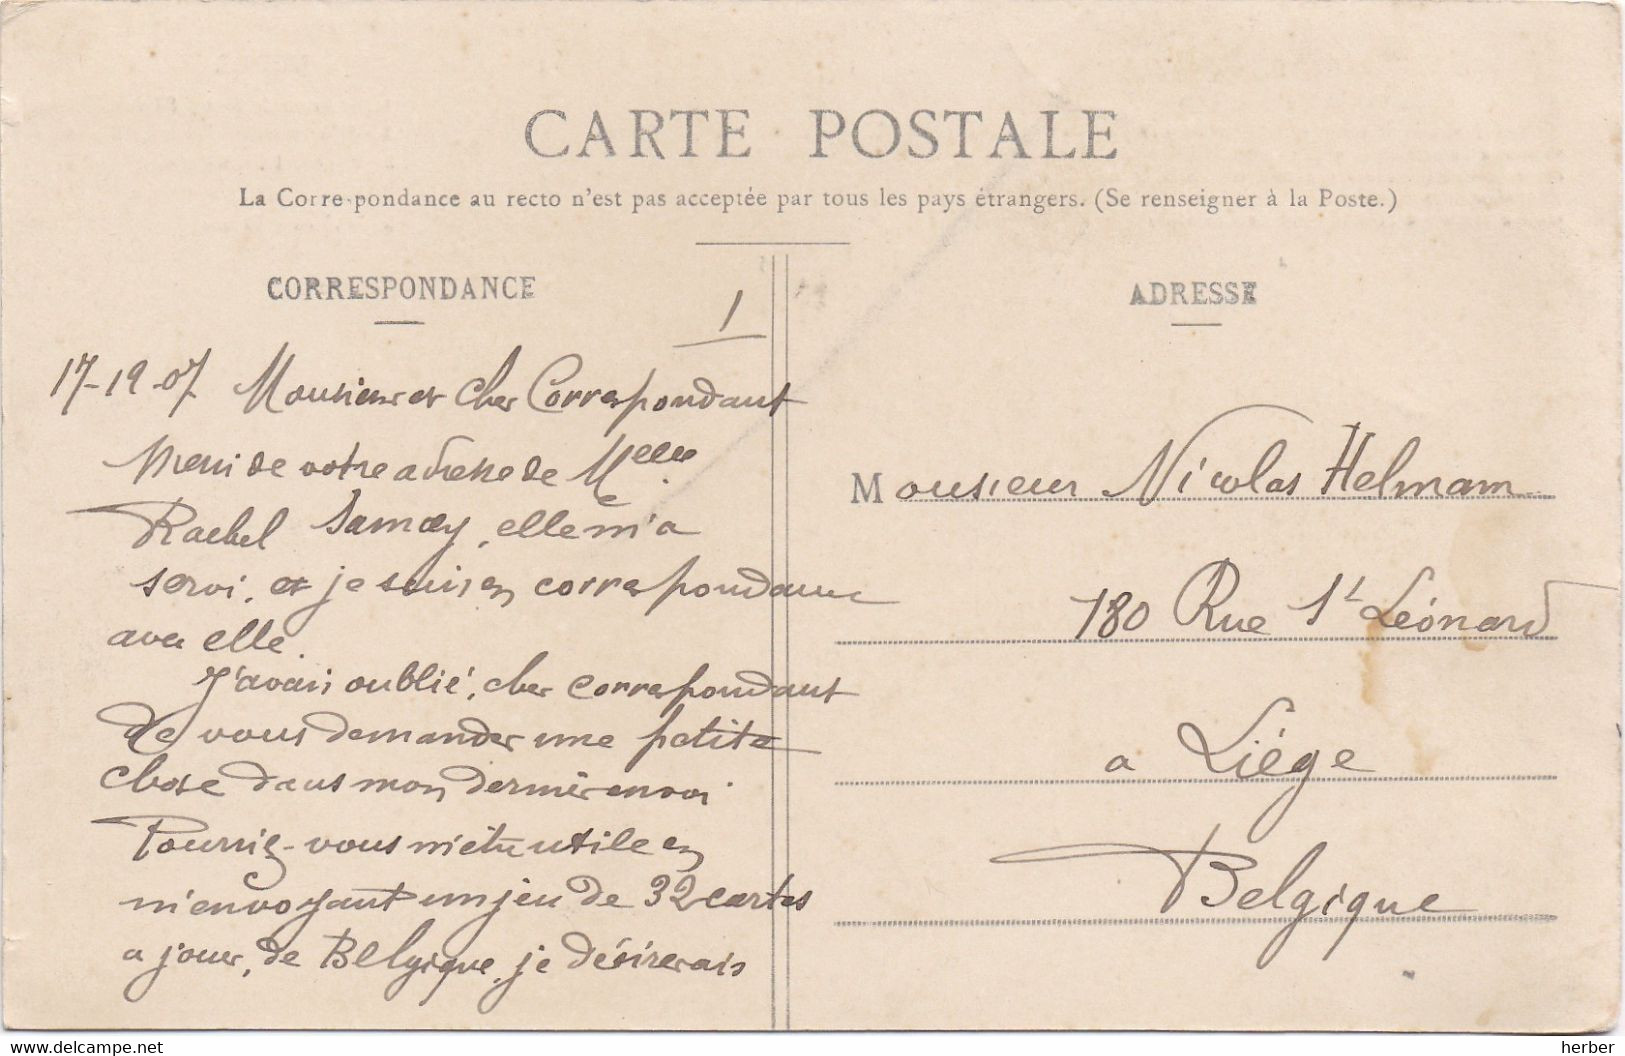 CARTE POSTALE
La Correspondance au recto n'est pas acceptée par tous les pays étrangers. (Se renseigner à la Poste.)
CORRESPONDANCE
1
17-19-07 Monsieur et cher Correspondant
Merci de votre adresse de Melle
Rachel Samoy, elle m'a
servi, et je suis en correspondance
avec elle.
J'avais oublié, cher correspondant
de vous demander une petite
chose dans mon dernier envoi
Pourriez-vous m'être utile en
m'envoyant un jeu de 32 cartes
a jouer, de Belgique, je désirerais
ADRESSE
Monsieur Nicolas Helmam
180 Rue St Léonard
a Liége
Belgique
delcampe.net
herber